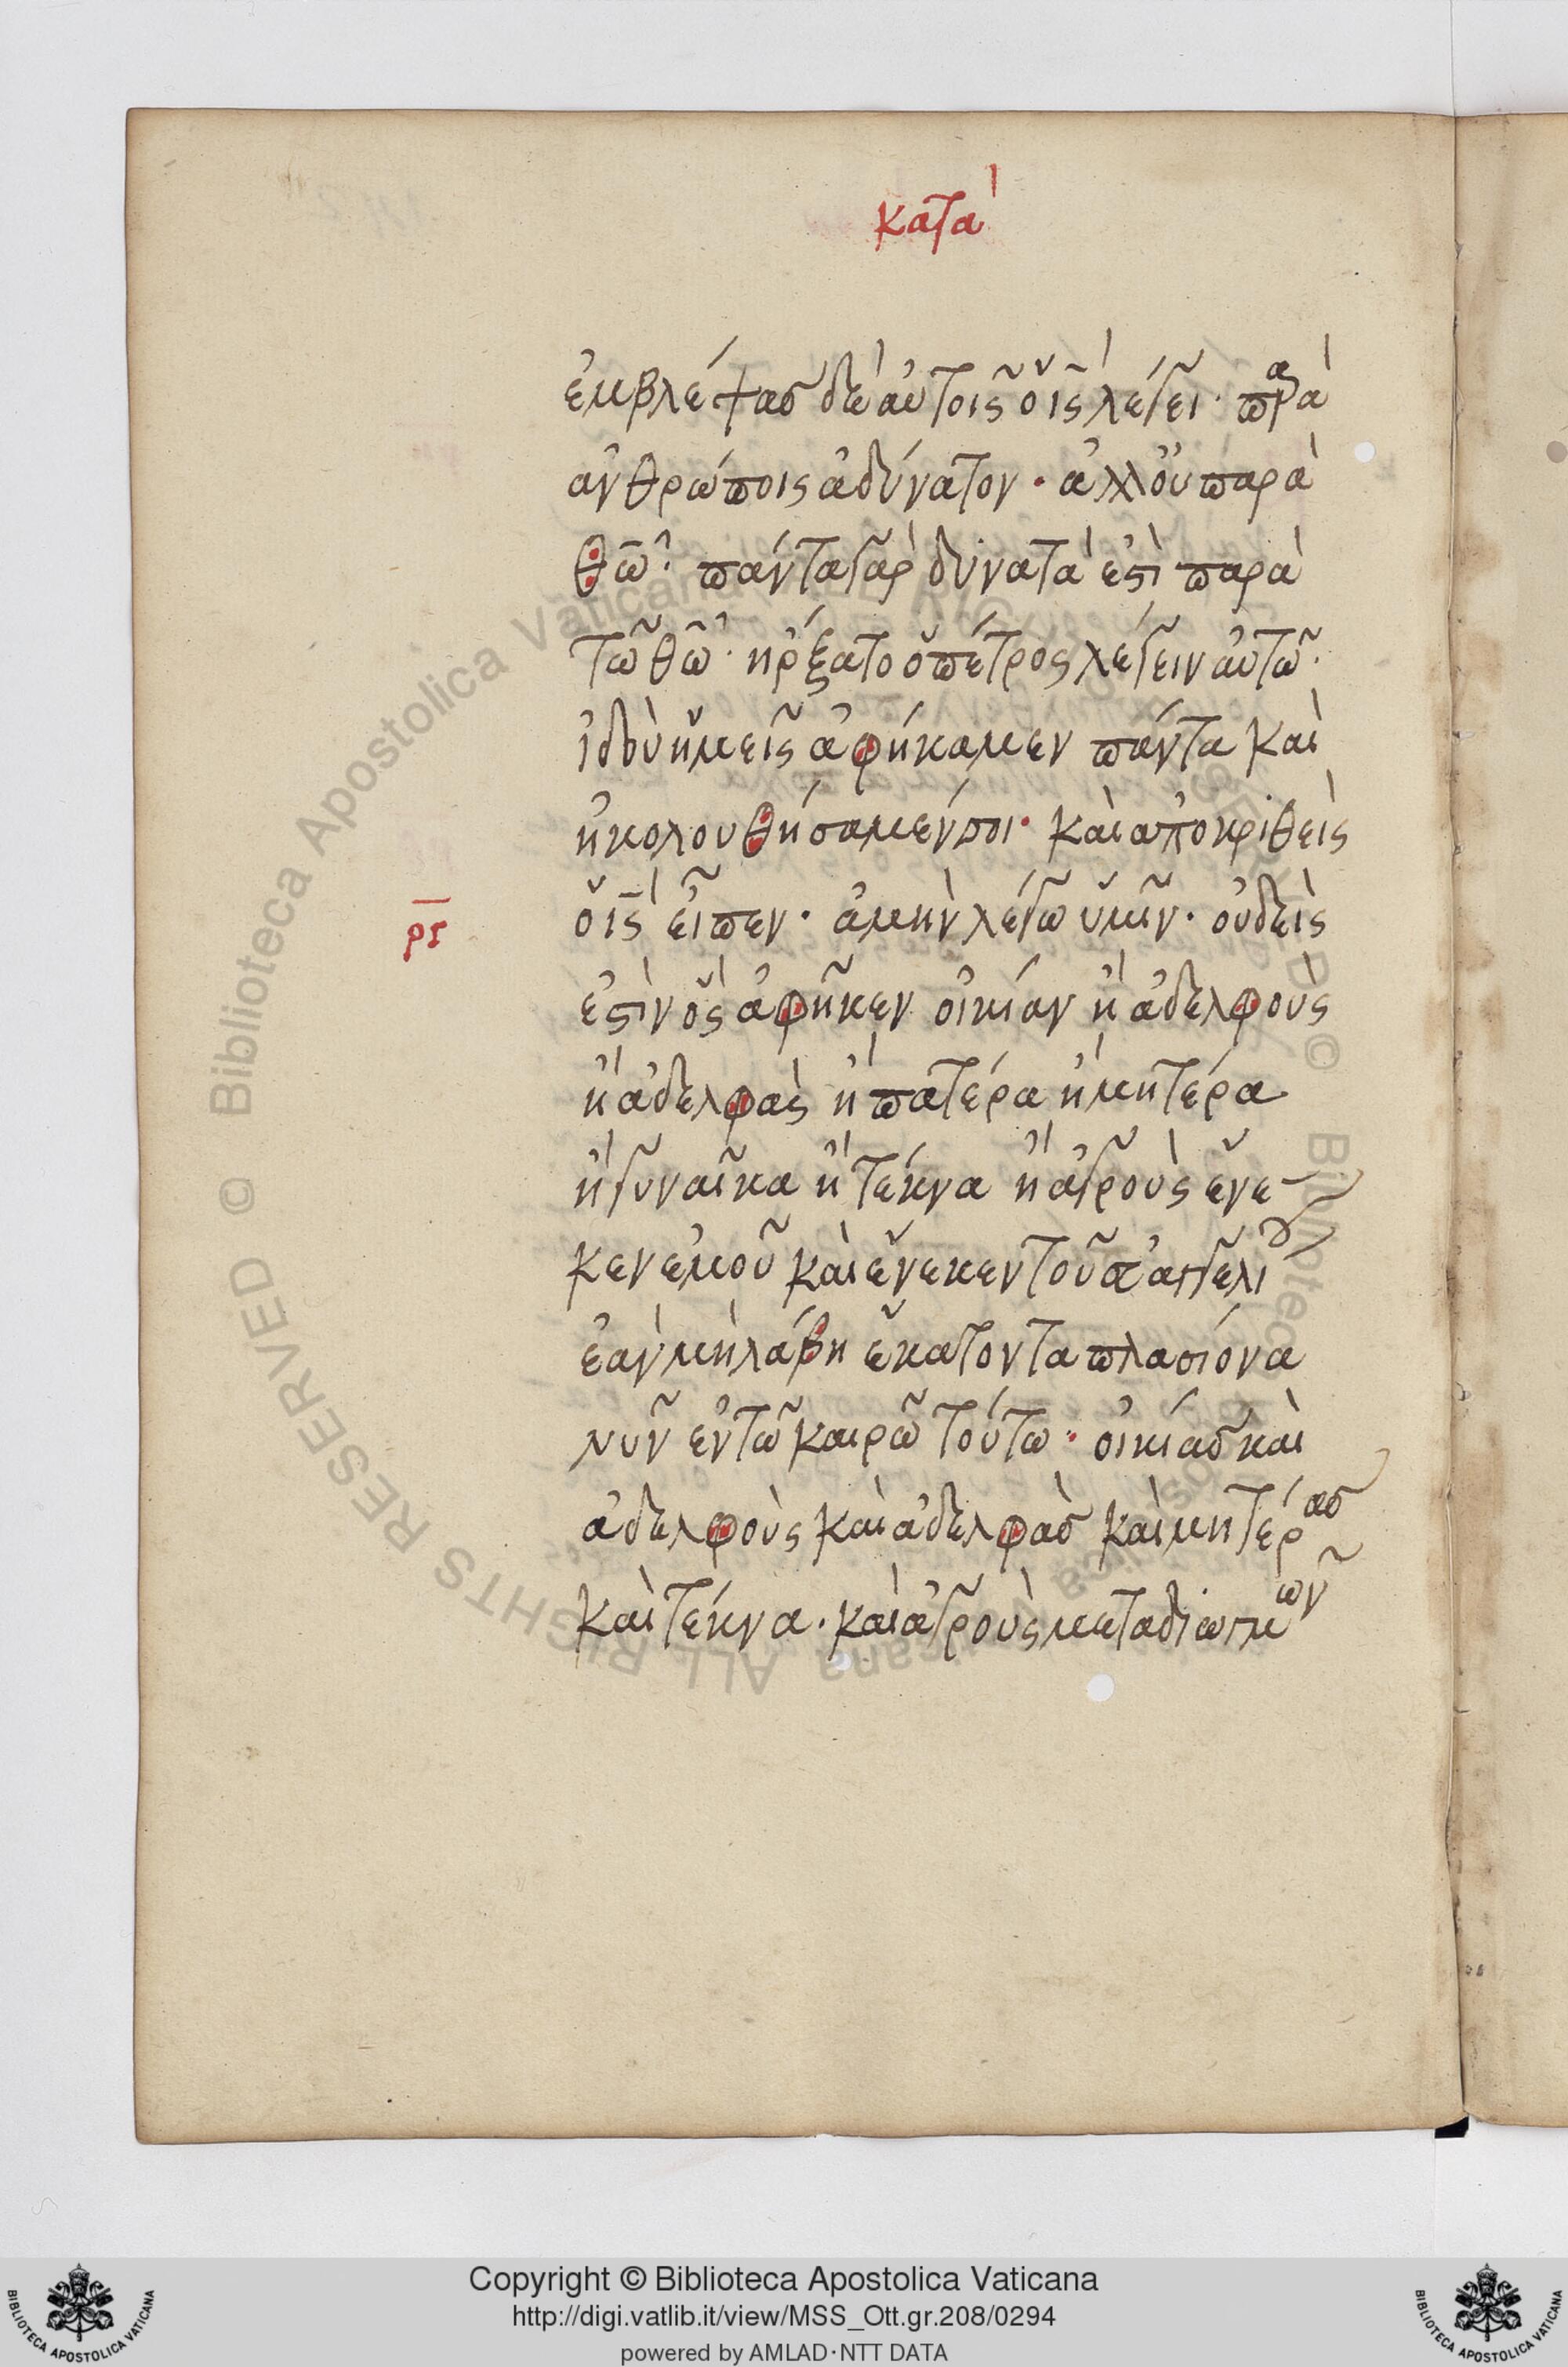 κατὰ
ἐμβλέψας δὲ αὐτοῖς ὁ ις λέγει· παρὰ
ἀνθρώποις ἀδύνατον· ἀλλ' οὐ παρὰ
θω· πάντα γὰρ δυνατὰ ἐστὶ παρὰ
τῶ θω· ἤρξατο ὁ πέτρος λέγειν αὐτῶ·
ἰδοὺ ἡμεῖς ἀφήκαμεν πάντα καὶ
ἠκολουθήσαμέν σοι· καὶ ἀποκριθεὶς
ρς
ὁ ις εἶπεν· ἀμὴν λέγω ὑμῖν· οὐδεὶς
ἐστὶν ὃς ἀφῆκεν οἰκίαν ἢ ἀδελφοὺς
ἢ ἀδελφὰς ἢ πατέρα ἢ μητέρα
ἢ γυναῖκα ἢ τέκνα ἢ ἀγροὺς ἕνε-
κεν ἐμοῦ καὶ ἕνεκεν τοῦ εὐαγγελίου
ἐὰν μὴ λάβη ἑκατονταπλασίονα
νῦν ἐν τῶ καιρῶ τούτω· οἰκίας καὶ
ἀδελφοὺς καὶ ἀδελφὰς καὶ μητέρας
καὶ τέκνα· καὶ ἀγροὺς μετὰ διωγμῶν
© Biblioteca Apostolica Vaticana ALL RIGHTS RESERVED
Copyright © Biblioteca Apostolica Vaticana
http://digi.vatlib.it/view/MSS_Ott.gr.208/0294
powered by AMLAD·NTT DATA
BIBLIOTECA APOSTOLICA VATICANA
BIBLIOTECA APOSTOLICA VATICANA